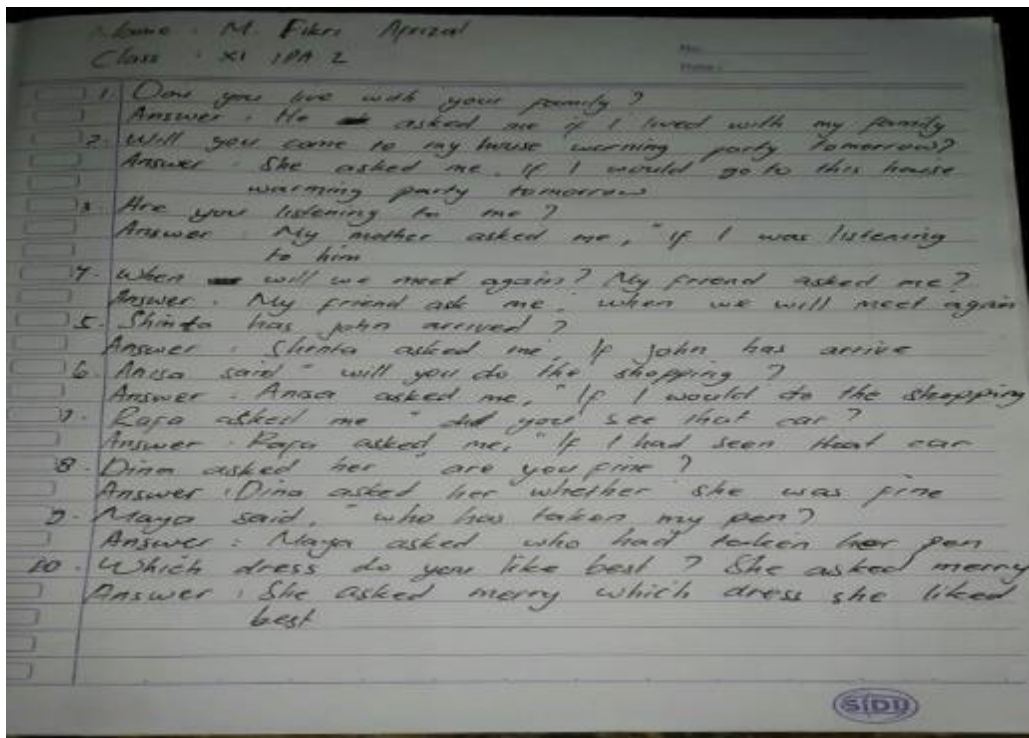 Name : M. Fikri Aprizal
Class : XI IPA 2
No :
Date :
1. Does you live with your family ?
Answer : He asked me if I lived with my family
2. Will you come to my house warming party tomorrow?
Answer : She asked me, if I would go to this house
warming party tomorrow
3. Are you listening to me ?
Answer : My mother asked me, "if I was listening
to him
4. When will we meet again? My friend asked me?
Answer : My friend ask me, when we will meet again
5. Shinta has john arrived ?
Answer : Shinta asked me, If john has arrive
6. Anisa said " will you do the shopping ?
Answer : Anisa asked me, "If I would do the shopping
7. Rafa asked me " did you see that car ?
Answer : Rafa asked me, "If I had seen that car
8. Dina asked her " are you fine ?
Answer : Dina asked her whether she was fine
9. Maya said, " who has taken my pen?
Answer : Maya asked who had taken her pen
10. Which dress do you like best ? She asked merry
Answer : She asked merry which dress she liked
best
SIDU